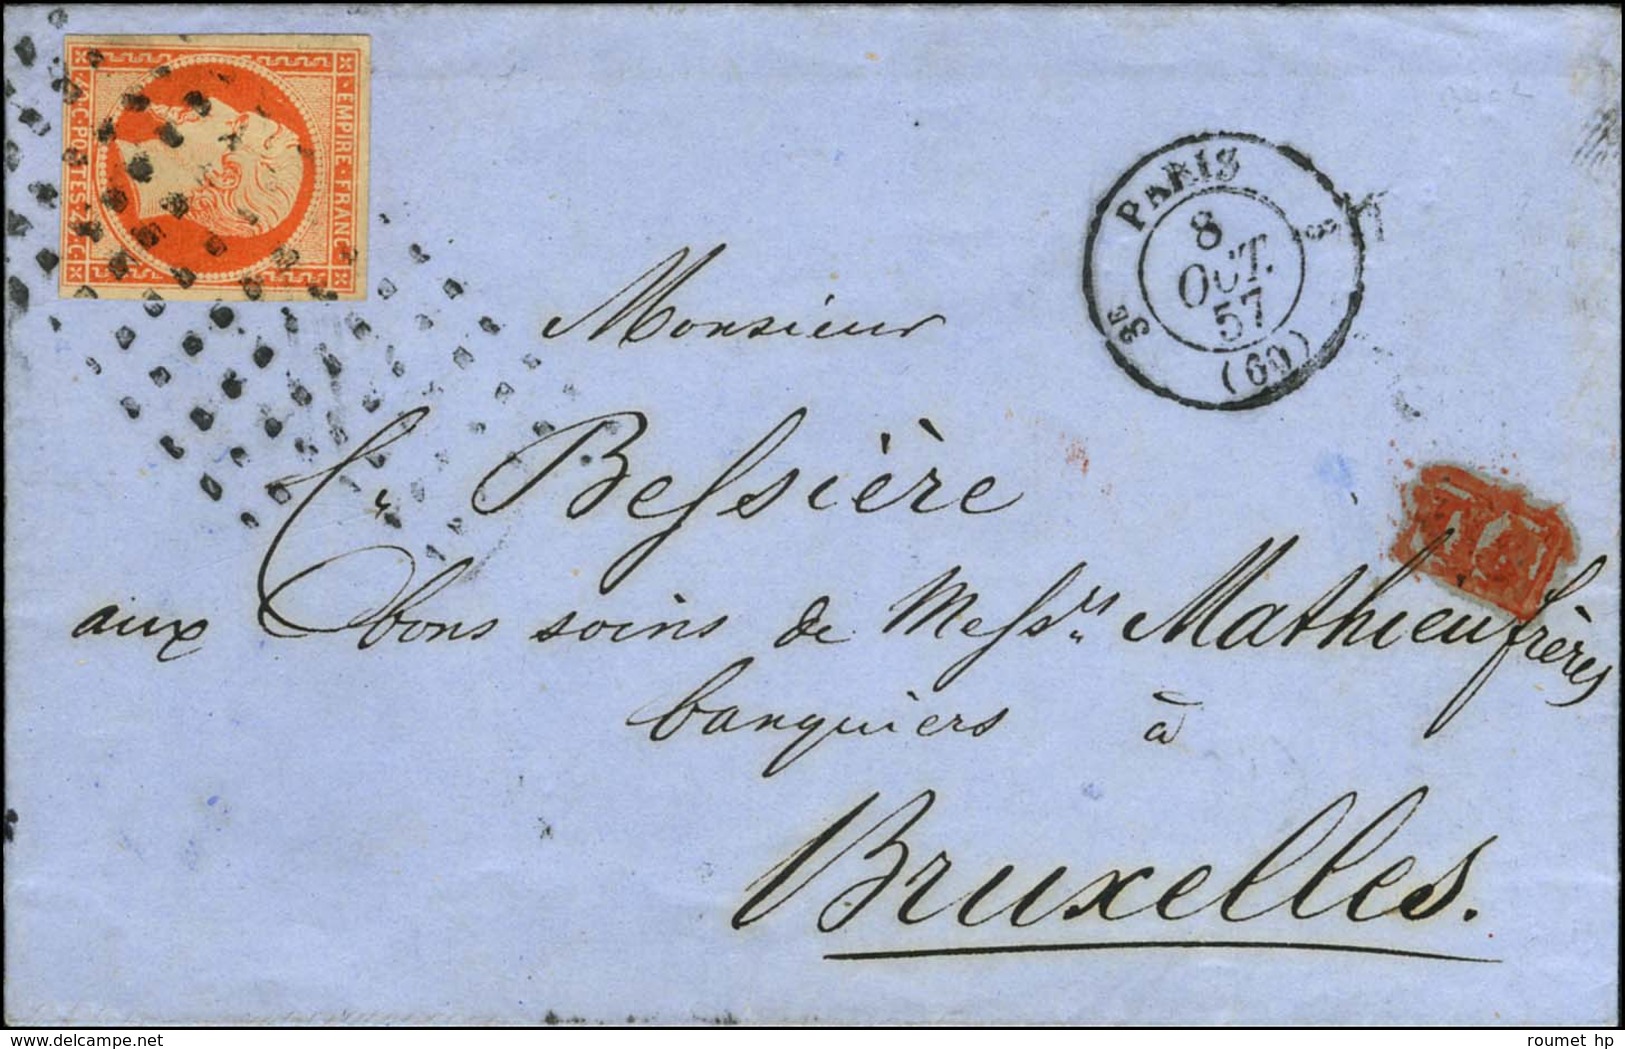 EMPIRE FRANC
40 C POSTES 40 C
PARIS
3E
8
OCT.
57
(60)
Monsieur
Bessière
aux bons soins de Mess.rs Mathieu frères
banquiers à
Bruxelles.
roumet hp